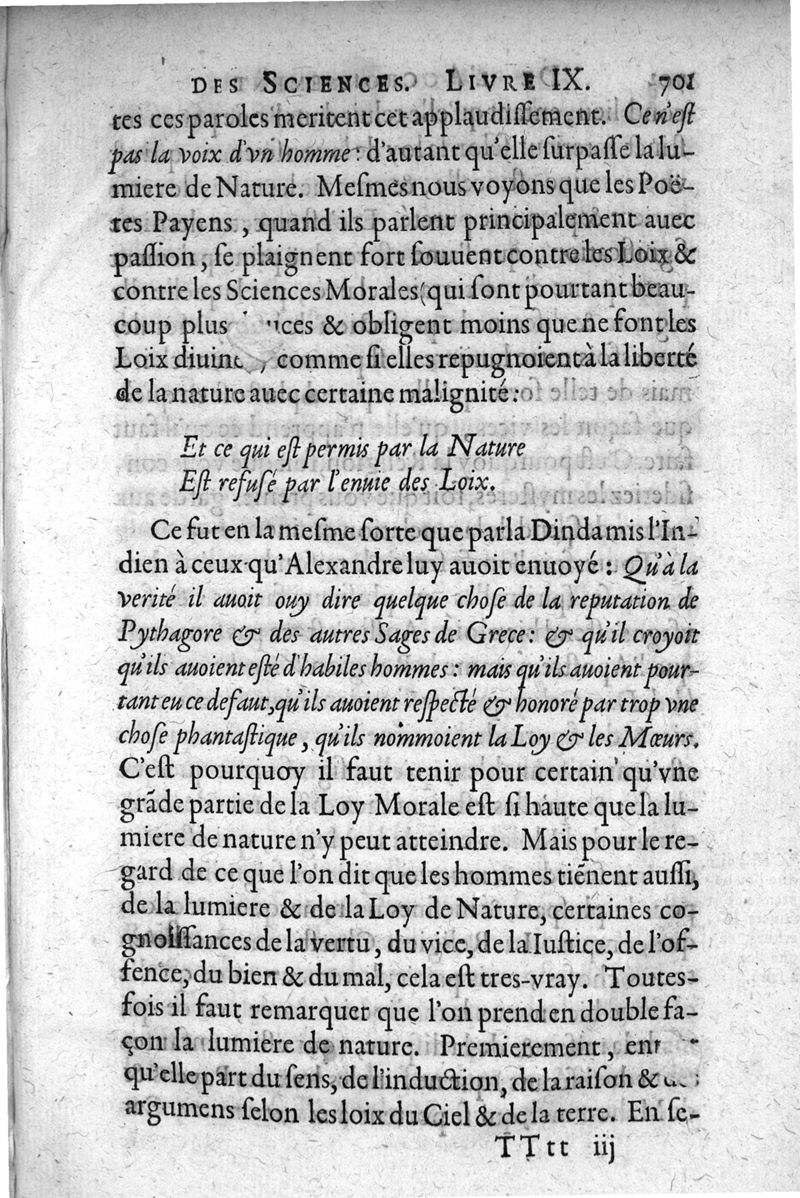 DES SCIENCES. LIVRE IX. 701
tes ces paroles meritent cet applaudiſſement. Ce n'eſt
pas la voix d'vn homme : d'autant qu'elle ſurpaſſe la lu-
miere de Nature. Meſmes nous voyons que les Poë-
tes Payens, quand ils parlent principalement auec
paſſion, ſe plaignent fort ſouuent contre les Loix &
contre les Sciences Morales (qui ſont pourtant beau-
coup plus & obligent moins que ne font les
Loix comme ſi elles repugnoient à la liberté
de la nature auec certaine malignité :
Et ce qui eſt permis par la Nature
Eſt refuſé par l'enuie des Loix.
Ce fut en la meſme ſorte que parla Dindamis l'In-
dien à ceux qu'Alexandre luy auoit enuoyé : Qu'à la
verité il auoit ouy dire quelque choſe de la reputation de
Pythagore & des autres Sages de Grece : & qu'il croyoit
qu'ils auoient eſté d'habiles hommes : mais qu'ils auoient pour-
tant eu ce defaut, qu'ils auoient reſpecté & honoré par trop vne
choſe phantaſtique, qu'ils nommoient la Loy & les Mœurs.
C'eſt pourquoy il faut tenir pour certain qu'vne
grãde partie de la Loy Morale eſt ſi haute que la lu-
miere de nature n'y peut atteindre. Mais pour le re-
gard de ce que l'on dit que les hommes tiẽnent auſſi,
de la lumiere & de la Loy de Nature, certaines co-
gnoiſſances de la vertu, du vice, de la Iuſtice, de l'of-
fence, du bien & du mal, cela eſt tres-vray. Toutes-
fois il faut remarquer que l'on prend en double fa-
çon la lumiere de nature. Premierement,
qu'elle part du ſens, de l'induction, de la raiſon &
argumens ſelon les loix du Ciel & de la terre. En ſe-
TTtt iij